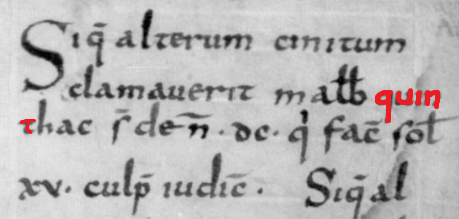 Siq̄ alterum cinitum
clamauerit malƀ quin
thac s̄ den̄ · dc · qͥ fac̄ sol̄
xv · culp̄ iudic̄ · Siq̄ al